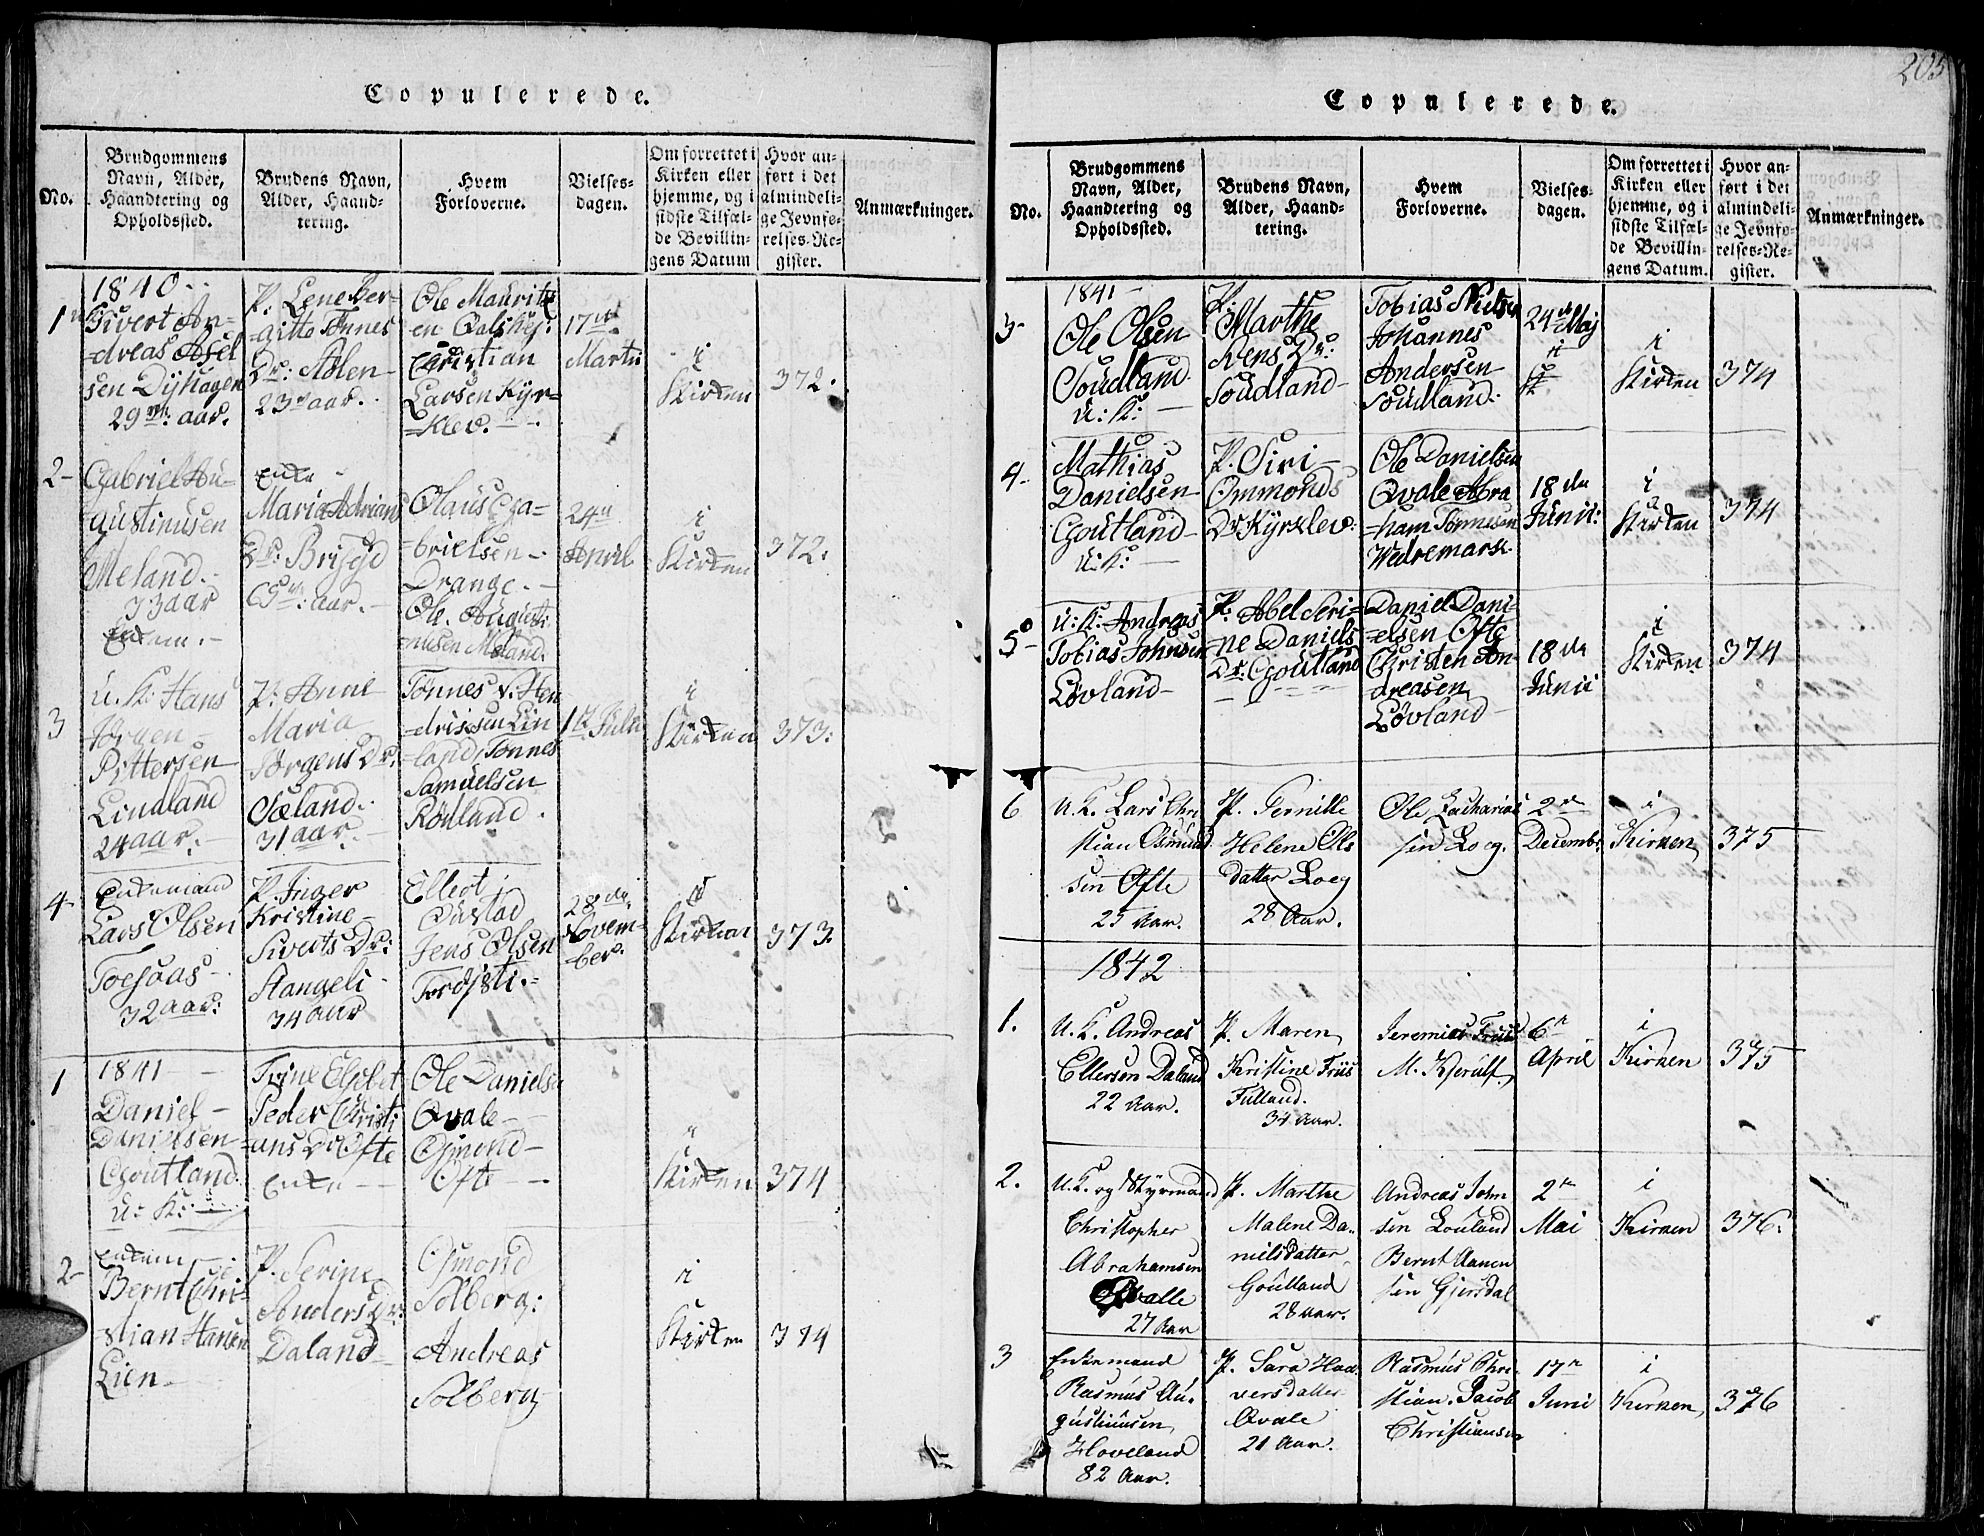 205
Copulerede.
No.
Brudgommens
Navn, Alder,
Haandtering og
Opholdssted.
Brudens Navn,
Alder, Haand-
tering.
Hvem
Forloverne.
Vielses-
dagen.
Om forrettet i
Kirken eller
hjemme, og i
sidste Tilfæl-
de Bevillin-
gens Datum
Hvor an-
ført i det
almindeli-
ge Jevnfø-
relses-Re-
gister.
Anmærkninger.
1840
1
Sivert An-
dreas Axel
sen Dÿhagen
29 aar.
P. Leneber-
gitte Tønnes
Dr: Aolen
23 aar.
Ole Mauritz
en
Christian
Larsen Kyr-
klev.
17
Martii
i
Kirken
372.
2
Gabriel Au-
gustinusen
Meland.
73 aar
Enkem.
Enke
Maria Adrians
Dr:
aar.
Olaus Ga-
brielsen
Drange.
Ole Augusti
nusen Meland.
24
April
i
Kirken
372.
3
U: K: Hans
Jørgen
Pettersen
Lindland
24 aar.
P. Anne
Maria
Jørgens Dr:
Sæland.
31 aar.
Tønnes V: Hen
dricsen Lin
land, Tønnes
Samuelsen
Røiland.
Julii
i
Kirken
373.
4
Enkemand
Lars Olsen
Toesaas
32 aar:
P. Inger
Kristine
Siverts Dr:
Stangeli
34 aar
Elleot
Oustad
Jens Olsen
28 de
Novem-
ber.
i
Kirken
373.
1841
1
Daniel
Danielsen
Goutland
U: K:
Trine Elsbet
Peder Christi
ans Dr Ofte
Enke
Ole Daniels
Qvale
Osmond
Ofte
i
Kirken
374
2
Enkem
Bernt Chri-
stian Hansen
Lien
P. Serine
Anders Dr:
Daland
Osmond
Solberg:
Andreas
Solberg
i
Kirken
374
Copulerede.
No.
Brudgommens
Navn, Alder,
Haandtering og
Opholdssted.
Brudens Navn,
Alder, Haand-
tering.
Hvem
Forloverne.
Vielses-
dagen.
Om forrettet i
Kirken eller
hjemme, og i
sidste Tilfæl-
de Bevillin-
gens Datum.
Hvor an-
ført i det
almindeli-
ge Jevnfø-
relses-Re-
gister.
Anmærkninger.
1841
3
Ole Olsen
Soudland
U: K:
P.
Marthe
Rens Dr:
Soudland
Tobias Nielsen
Johannes
Andersen
Soudland.
24 de Maj
i
Kirken
374
4
Mathias
Danielsen
Goutland
U: K:
P. Siri
Ommonds
Dr Kyrklev:
Ole Danielsen
Qvale Abra
ham Tønnesen
Wedremark.
18 de
Junii:
i
Kirken
374
5
U: K: Andreas
Tobias Johnsen
Løvland
P. Abel Seri-
ne Daniels
Dr: Goutland
Daniel Dani-
elsen Ofte
Christen An-
dreasen
Løvland
18 de
Junii
i
Kirken
374
6
U. K. Lars Chri
stian Osmund
sen Ofte
25 Aar.
P. Pernille
Helene Ols
datter Loeg
28 Aar.
Ole Zacharias
sen Loeg.
2de
Decemb:
i
Kirken
375
1842
1.
U. K. Andreas
Ellersen Daland
22 Aar.
P. Maren
Kristine Friis
Fuland.
34 Aar.
Jeremias Friis
M. Kjerulf
6
April
i
Kirken
375
2.
U. K. og Styrmand
Christopher
Abrahamsen
Qvalle
27 Aar
P. Marthe
Malene Da-
nielsdatter
Goutland
28 Aar.
Andreas John
sen Louland
Bernt Aanen
sen Gjersdal
2
Mai
i
Kirken
376.
3
Enkemand
Rasmus Au-
gustinusen
Hoveland
82 Aar.
P. Sara Haa
versdatter
Qvale
21 Aar.
Rasmus Chri-
stian Jacob
Christiansen
17
Juni
i
Kirken
376